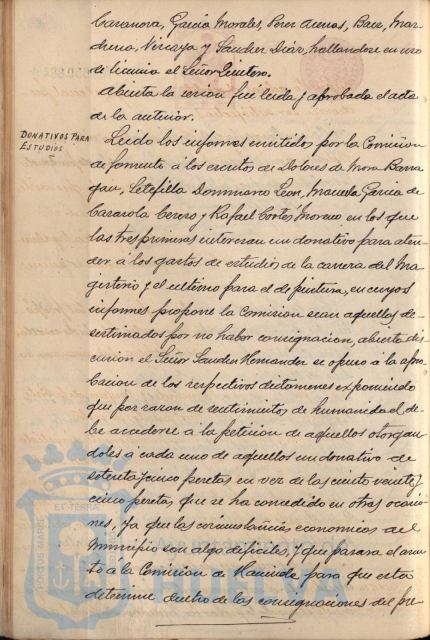 Casanova, Garcia Morales, Perez Arenas, Baez, Mar-
chena, Vizcaya y Sanchez Diaz, hallandose en uso
de licencia el Señor Quintero.
Abierta la sesion fué leida y aprobada el acta
de la anterior.
DONATIVOS PARA
ESTUDIOS
Leidos los informes emitidos por la Comision
de fomento á los escritos de Dolores de Mora Barra
gan, Setefilla Leon, Manuela Garcia de
Casasola Cerero y Rafael Cortés Moreno en los que
las tres primeras interesan un donativo para aten-
der á los gastos de estudios de la carrera del Ma
gisterio y el ultimo para el de pintura, en cuyos
informes propone la Comision sean aquellos de-
sestimados por no haber consignacion, abierta dis
cusion el Señor Sanchez Hernandez se opuso á la apro
bacion de los respectivos dictamenes exponiendo
que por razon de sentimientos de humanidad de-
be accederse á la peticion de aquellos otorgan
doles á cada uno de aquellos un donativo de
setenta y cinco pesetas en vez de las ciento veinte y
cinco pesetas que se ha concedido en otras ocasio
nes, ya que las circunstancias economicas del
Municipio son algo dificiles, y que pasara el asun
to á la Comision de Hacienda para que esta
determine dentro de las consignaciones del pre
PORTUS MARIS ET TERRAE
HUELVA